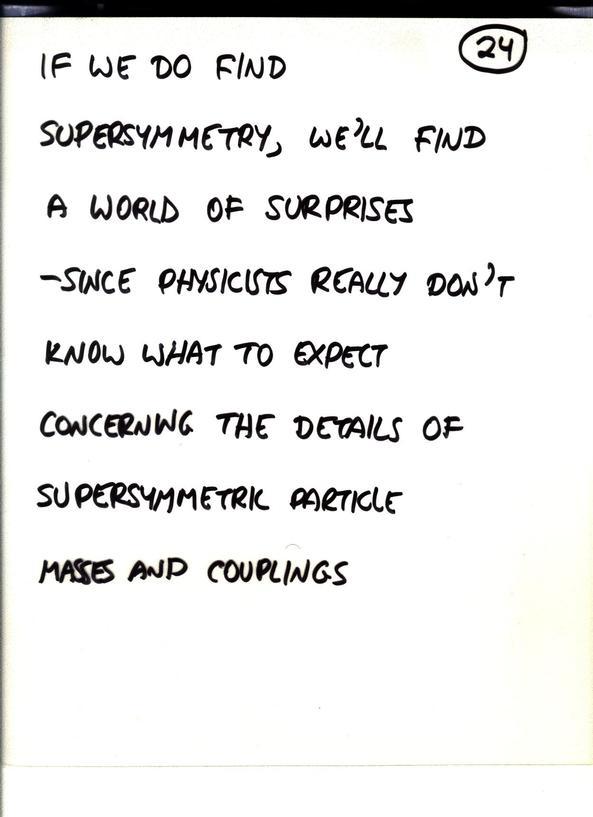 24
IF WE DO FIND
SUPERSYMMETRY, WE'LL FIND
A WORLD OF SURPRISES
-SINCE PHYSICISTS REALLY DON'T
KNOW WHAT TO EXPECT
CONCERNING THE DETAILS OF
SUPERSYMMETRIC PARTICLE
MASSES AND COUPLINGS